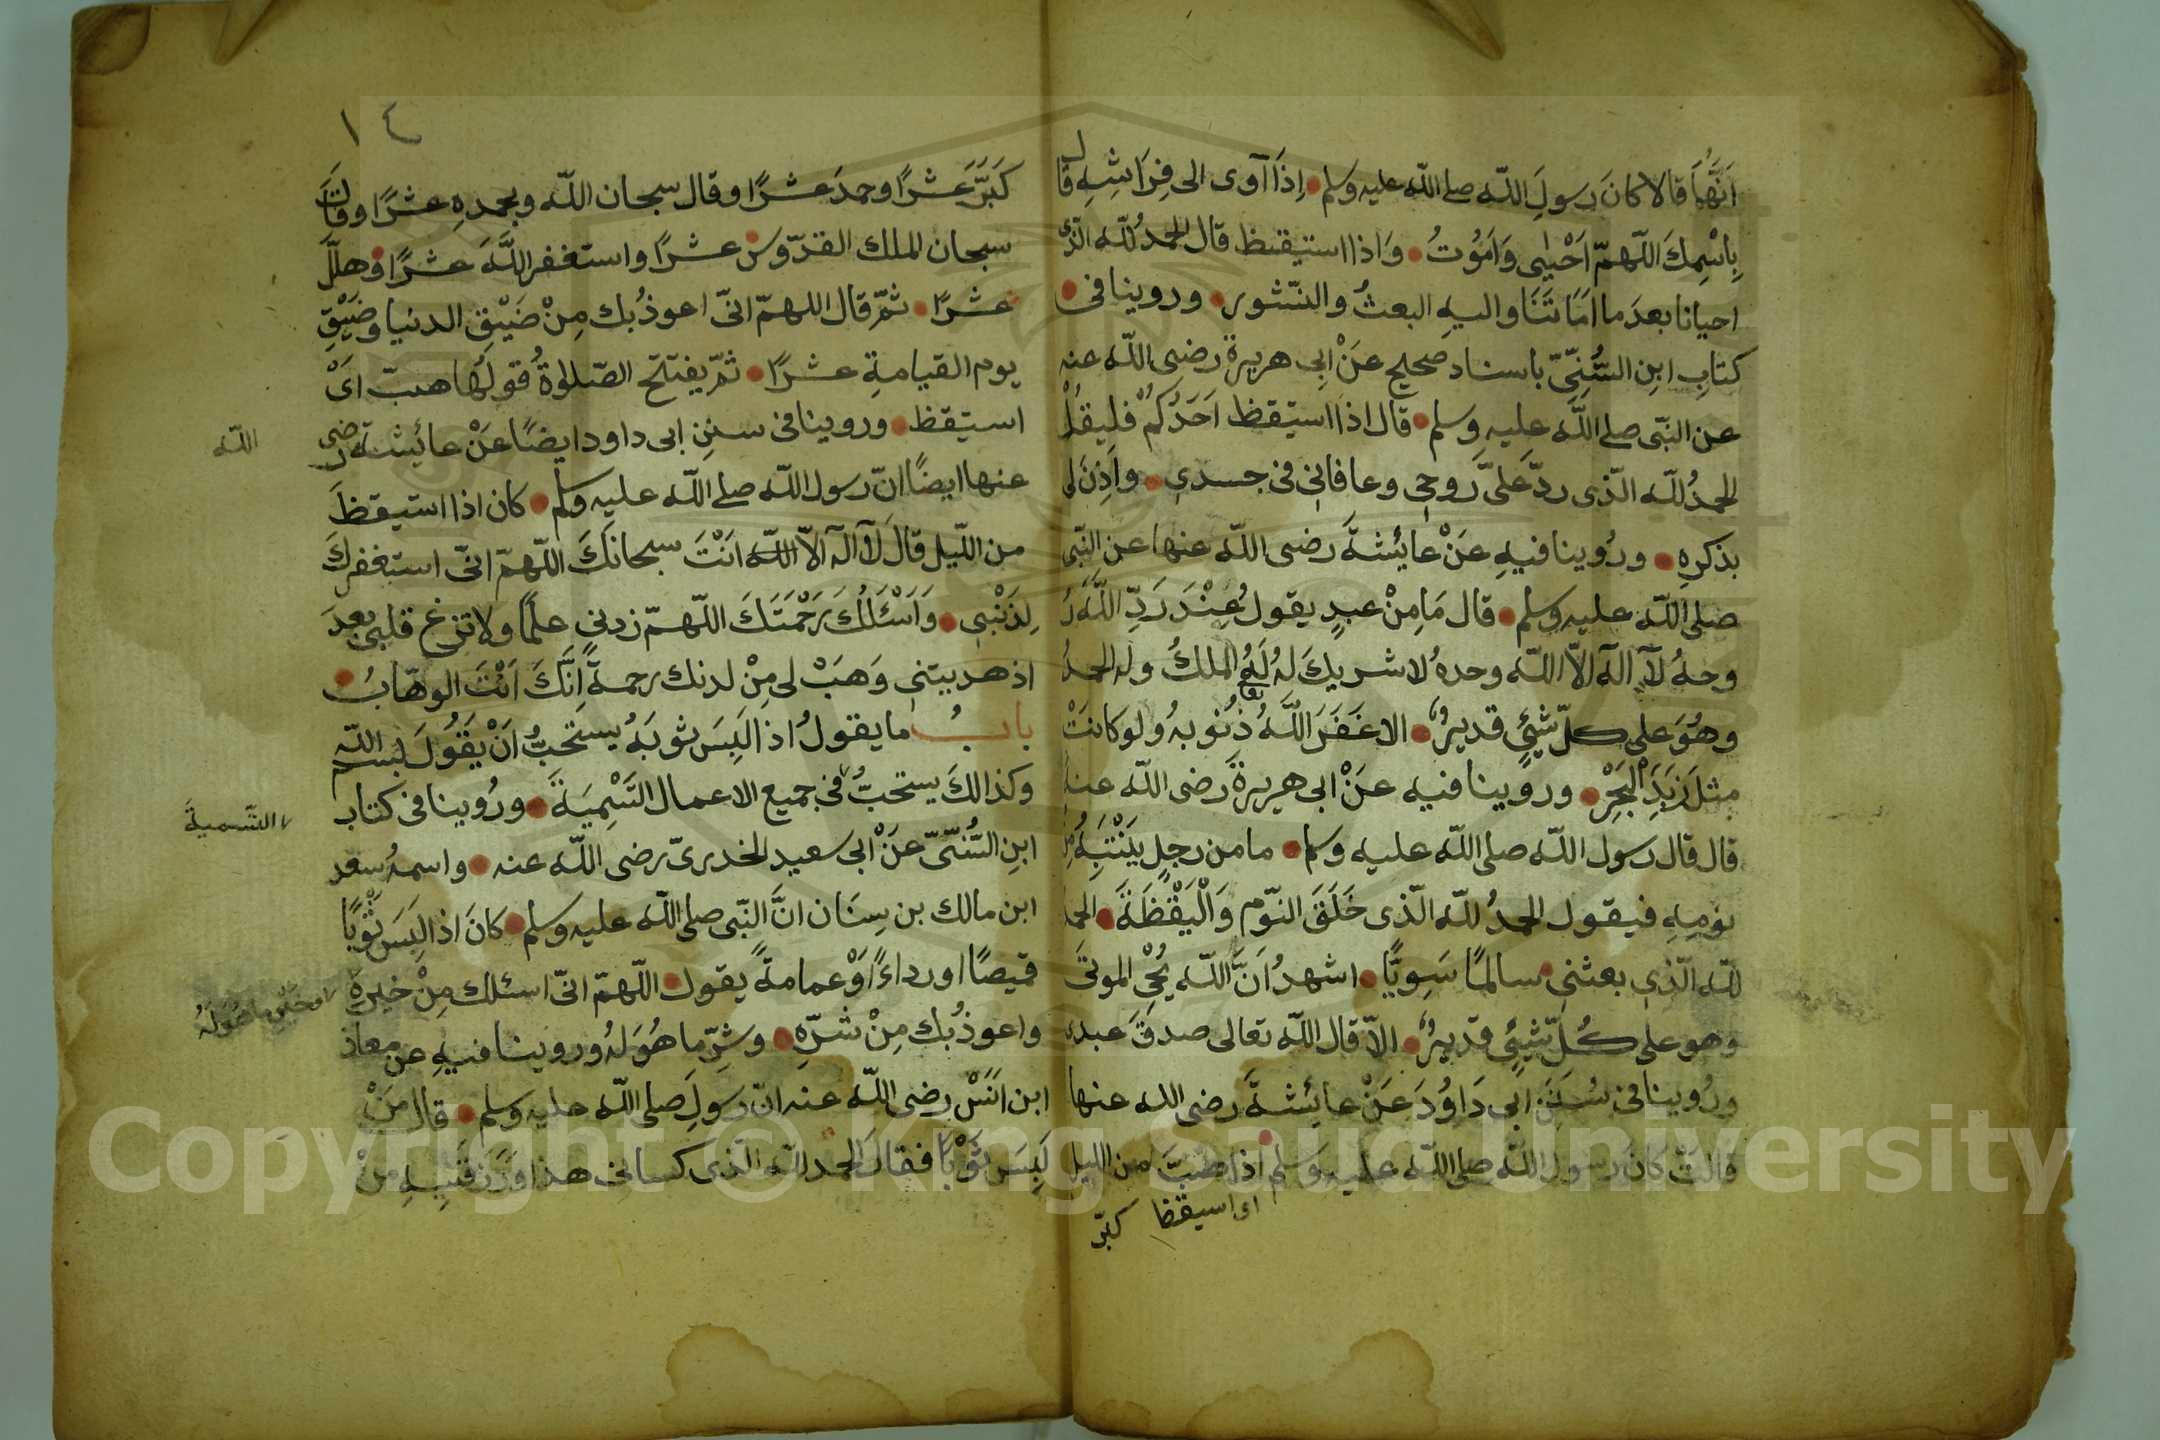 اَنَّهُمَا قالا كانَ رسولَ اللّه صلى اللّه عليه وسلم اِذَا آوى الى فِرَاشِهِ قال
بِاسْمِكَ اللّهمّ اَحْيٰى وَاَمُوْتُ وَاذا استيقظ قال الحمدُ للّه الّذى
احيانا بعدَ ما اَمَاتَنَا واليهِ البعثُ والنّشور وروينا فى
كتابِ ابنِ السُّنِّىِّ باسناد صحيح عَنْ ابى هريرة رضى اللّه عنه
عن النّبى صلى اللَّه عليه وسلم قال اذا استيقظ اَحَدُكُمْ فليقُلْ
الحمدُ للّه الّذى ردَّ علىَّ روحى وعافانى فى جسدى واَذِنَ لى
بذكرهِ ورُوينا فيهِ عَنْ عائشةَ رضى اللّه عنها عن النّبى
صلى اللّه عليه وسلم قال مَا مِنْ عبدٍ يقولُ عِنْدَ رَدِّ اللَّهِ رُ
وحهُ لَآ الهَ الاّ اللّه وحدهُ لا شريكَ لهُ لَهُ الملكُ وله الحمدُ
وهُوَ على كلّ شيئٍ قديرٌ الا غَفَرَ اللَّهُ تعا ذُنُوبهُ ولو كانتْ
مثلَ زَبَدِ الْبَحْرِ وروينا فيه عَنْ ابى هريرةَ رضى اللّه عنه
قال قال رسول اللّه صلى اللّه عليه وسلم ما من رجلٍ يَنْتَبِهُ مِنْ
نومِهِ فيقول الحمدُ للّه الّذى خَلَقَ النّوم وَالْيَقْظَةَ الحمد
للّه الّذى بعثنى سالمًا سَوِيًّا اشهدُ اَنَّ اللّه يُحْىِ الموتىَ
وهو على كُلّ شيئٍ قديرٌ الاّ قال اللّه تعالى صدقَ عبدى
ورُوينا فى سُنَنِ ابى دَاوُدَ عَنْ عائشةَ رضى الله عنها
قالتْ كانَ رسول اللّه صلى اللّه عليه وسلم اذا هبَّ من الليل
اى استيقظ كبّر
١٤
كَبَّرَ عَشْرًا وحمدَ عشرًا وقال سبحان اللّه وبحمدِهِ عشرًا وقال
سبحان الملك القدّوس عشرًا واستغفر اللَّهَ عشرًا وهلّل
عشرًا ثمّ قال اللهمّ انّى اعوذُ بك مِنْ ضَيْقِ الدنيا وضَيْقِ
يوم القيامةِ عشرًا ثمّ يفتتح الصّلوةَ قولُها هبّ اىْ
استيقظ وروينا فى سننِ ابى داود ايضًا عَنْ عائيشة رضى
اللّه
عنها ايضًا انّ رسول اللّه صلى اللّه عليه وسلم كان اذا استيقظَ
من اللّيل قالَ لَآ الهَ الاّ اللّه اَنْتَ سبحانكَ اللّهمّ انّى استغفرك
لِذَنْبى وَاَسْئَلُكَ رَحْمَتَكَ اللّهمّ زدنى علمًا ولا تزغ قلبى بعدَ
اذ هديتنى وَهَبْ لى مِنْ لدنك رحمةً اِنَّكَ اَنْتَ الوهّابُ
بابُ ما يقولُ اذا لَبِسَ ثوبَهُ يُستحَبُّ اَنْ يَقُولَ بسم اللّه
وكذالكَ يستحبُّ فى جميع الاعمال التَّسْمِيَةَ ورُوينا فى كتاب
التّسمية
ابنِ السُّنّىّ عَنْ ابى سعيد الخدرىّ رضى اللّه عنه واسمهُ سعد
ابن مالك بن سِنَان انَّ النّبى صلى اللّه عليه وسلم كانَ اذا لَبِسَ ثَوْبًا
قميصًا او رداءً اَوْ عمامةً يقول اللّهمّ انّى اسئلك مِنْ خيرهِ
وخير ما هُوَ لَهُ
واعوذُ بك مِنْ شرّهِ وشرِّ ما هُوَ لهُ وروينا فيهِ عن معاذ
ابن انَسْ رضى اللّه عنه انّ رسولِ صلى اللّه عليه وسلم قال مَنْ
لَبِسَ ثَوْبًا فقالَ الحمد للّه الّذى كسانى هذا ورَزَقَنِيهِ مِنْ
Copyright © King Saud University